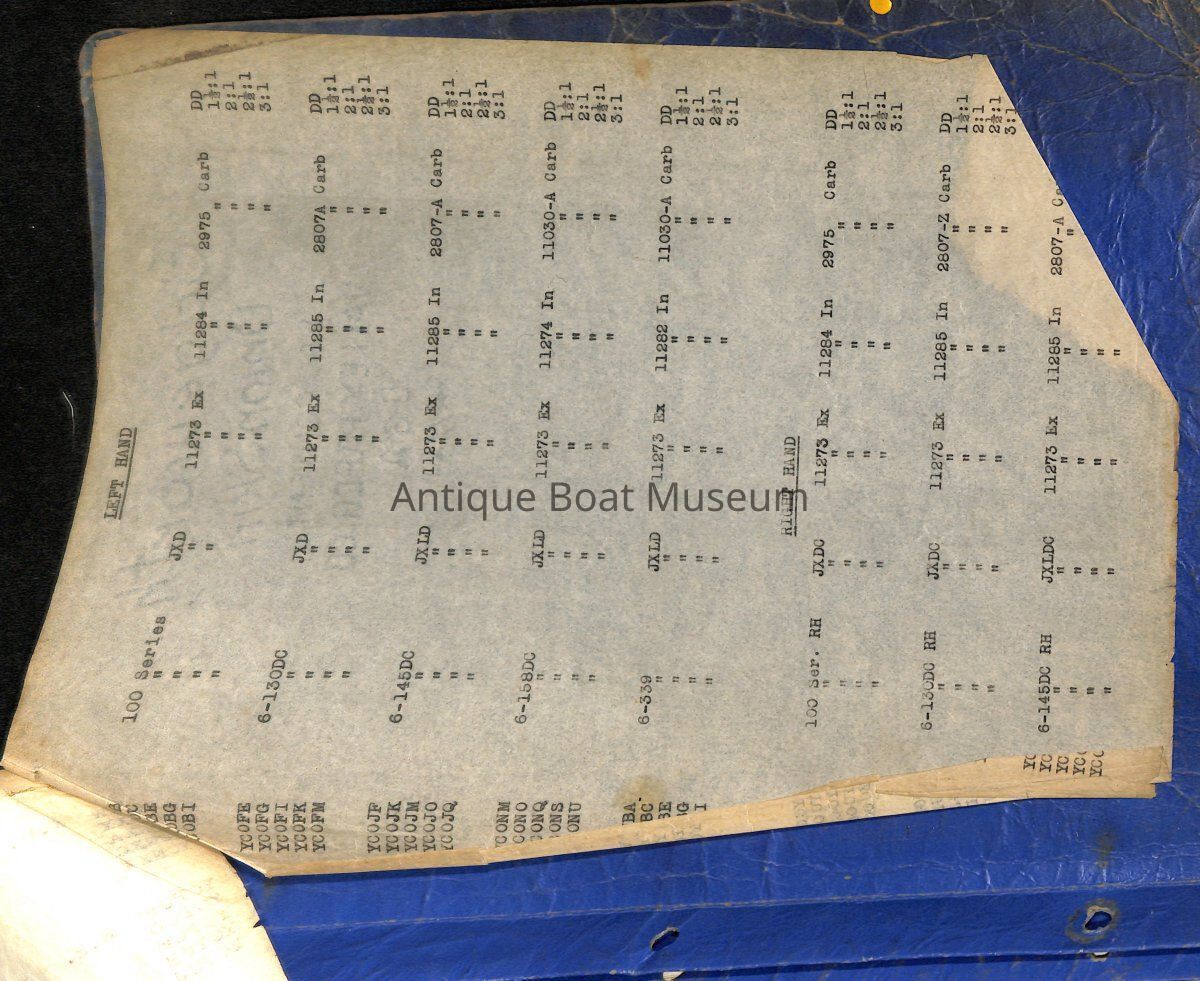 LEFT HAND
100 Series JXD 11273 Ex 11284 In 2975 Carb DD
C " " " " " 1½:1
BE " " " " " 2:1
OBG " " " " 2½:1
OBI " " " " 3:1
YCOFE 6-130DC JXD 11273 Ex 11285 In 2807A Carb DD
YCOFG " " " " " 1½:1
YCOFI " " " " " 2:1
YCOFK " " " " " 2½:1
YCOFM " " " " " 3:1
YCOJF 6-145DC JXLD 11273 Ex 11285 In 2807-A Carb DD
YCOJK " " " " " 1½:1
YCOJM " " " " " 2:1
YCOJO " " " " " 2½:1
YCOJQ " " " " " 3:1
YCONM 6-158DC JXLD 11273 Ex 11274 In 11030-A Carb DD
CONO " " " " " 1½:1
ONQ " " " " " 2:1
ONS " " " " " 2½:1
ONU " " " " " 3:1
BA 6-339 JXLD 11273 Ex 11282 In 11030-A Carb DD
BC " " " " " 1½:1
BE " " " " " 2:1
G " " " " " 2½:1
I " " " " " 3:1
RIGHT HAND
100 Ser. RH JXDC 11273 Ex 11284 In 2975 Carb DD
" " " " " 1½:1
" " " " " 2:1
" " " " " 2½:1
" " " " " 3:1
6-130DC RH JXDC 11273 Ex 11285 In 2807-Z Carb DD
" " " " " 1½:1
" " " " " 2:1
" " " " " 2½:1
" " " " " 3:1
YC 6-145DC RH JXLDC 11273 Ex 11285 In 2807-A
YC " " " " "
YC " " " "
YC " " " "
YC " " " "
Antique Boat Museum